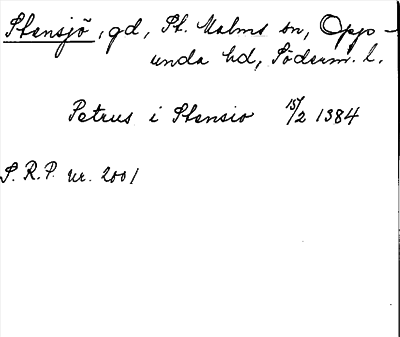 Stensjö, gd, St. Malms sn, Opp-
unda hd, Söderm. l.
Petrus i Stensio 15/2 1384
S.R.P. nr. 2001